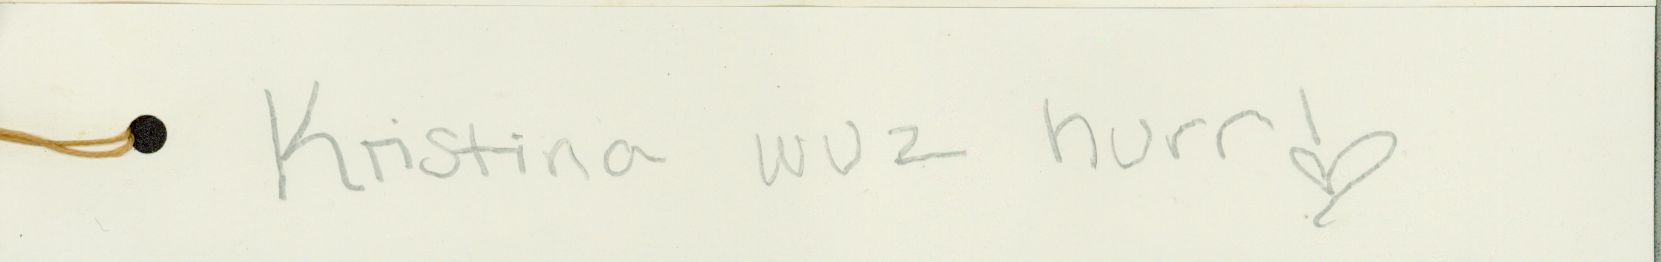 Kristina wuz hurr!